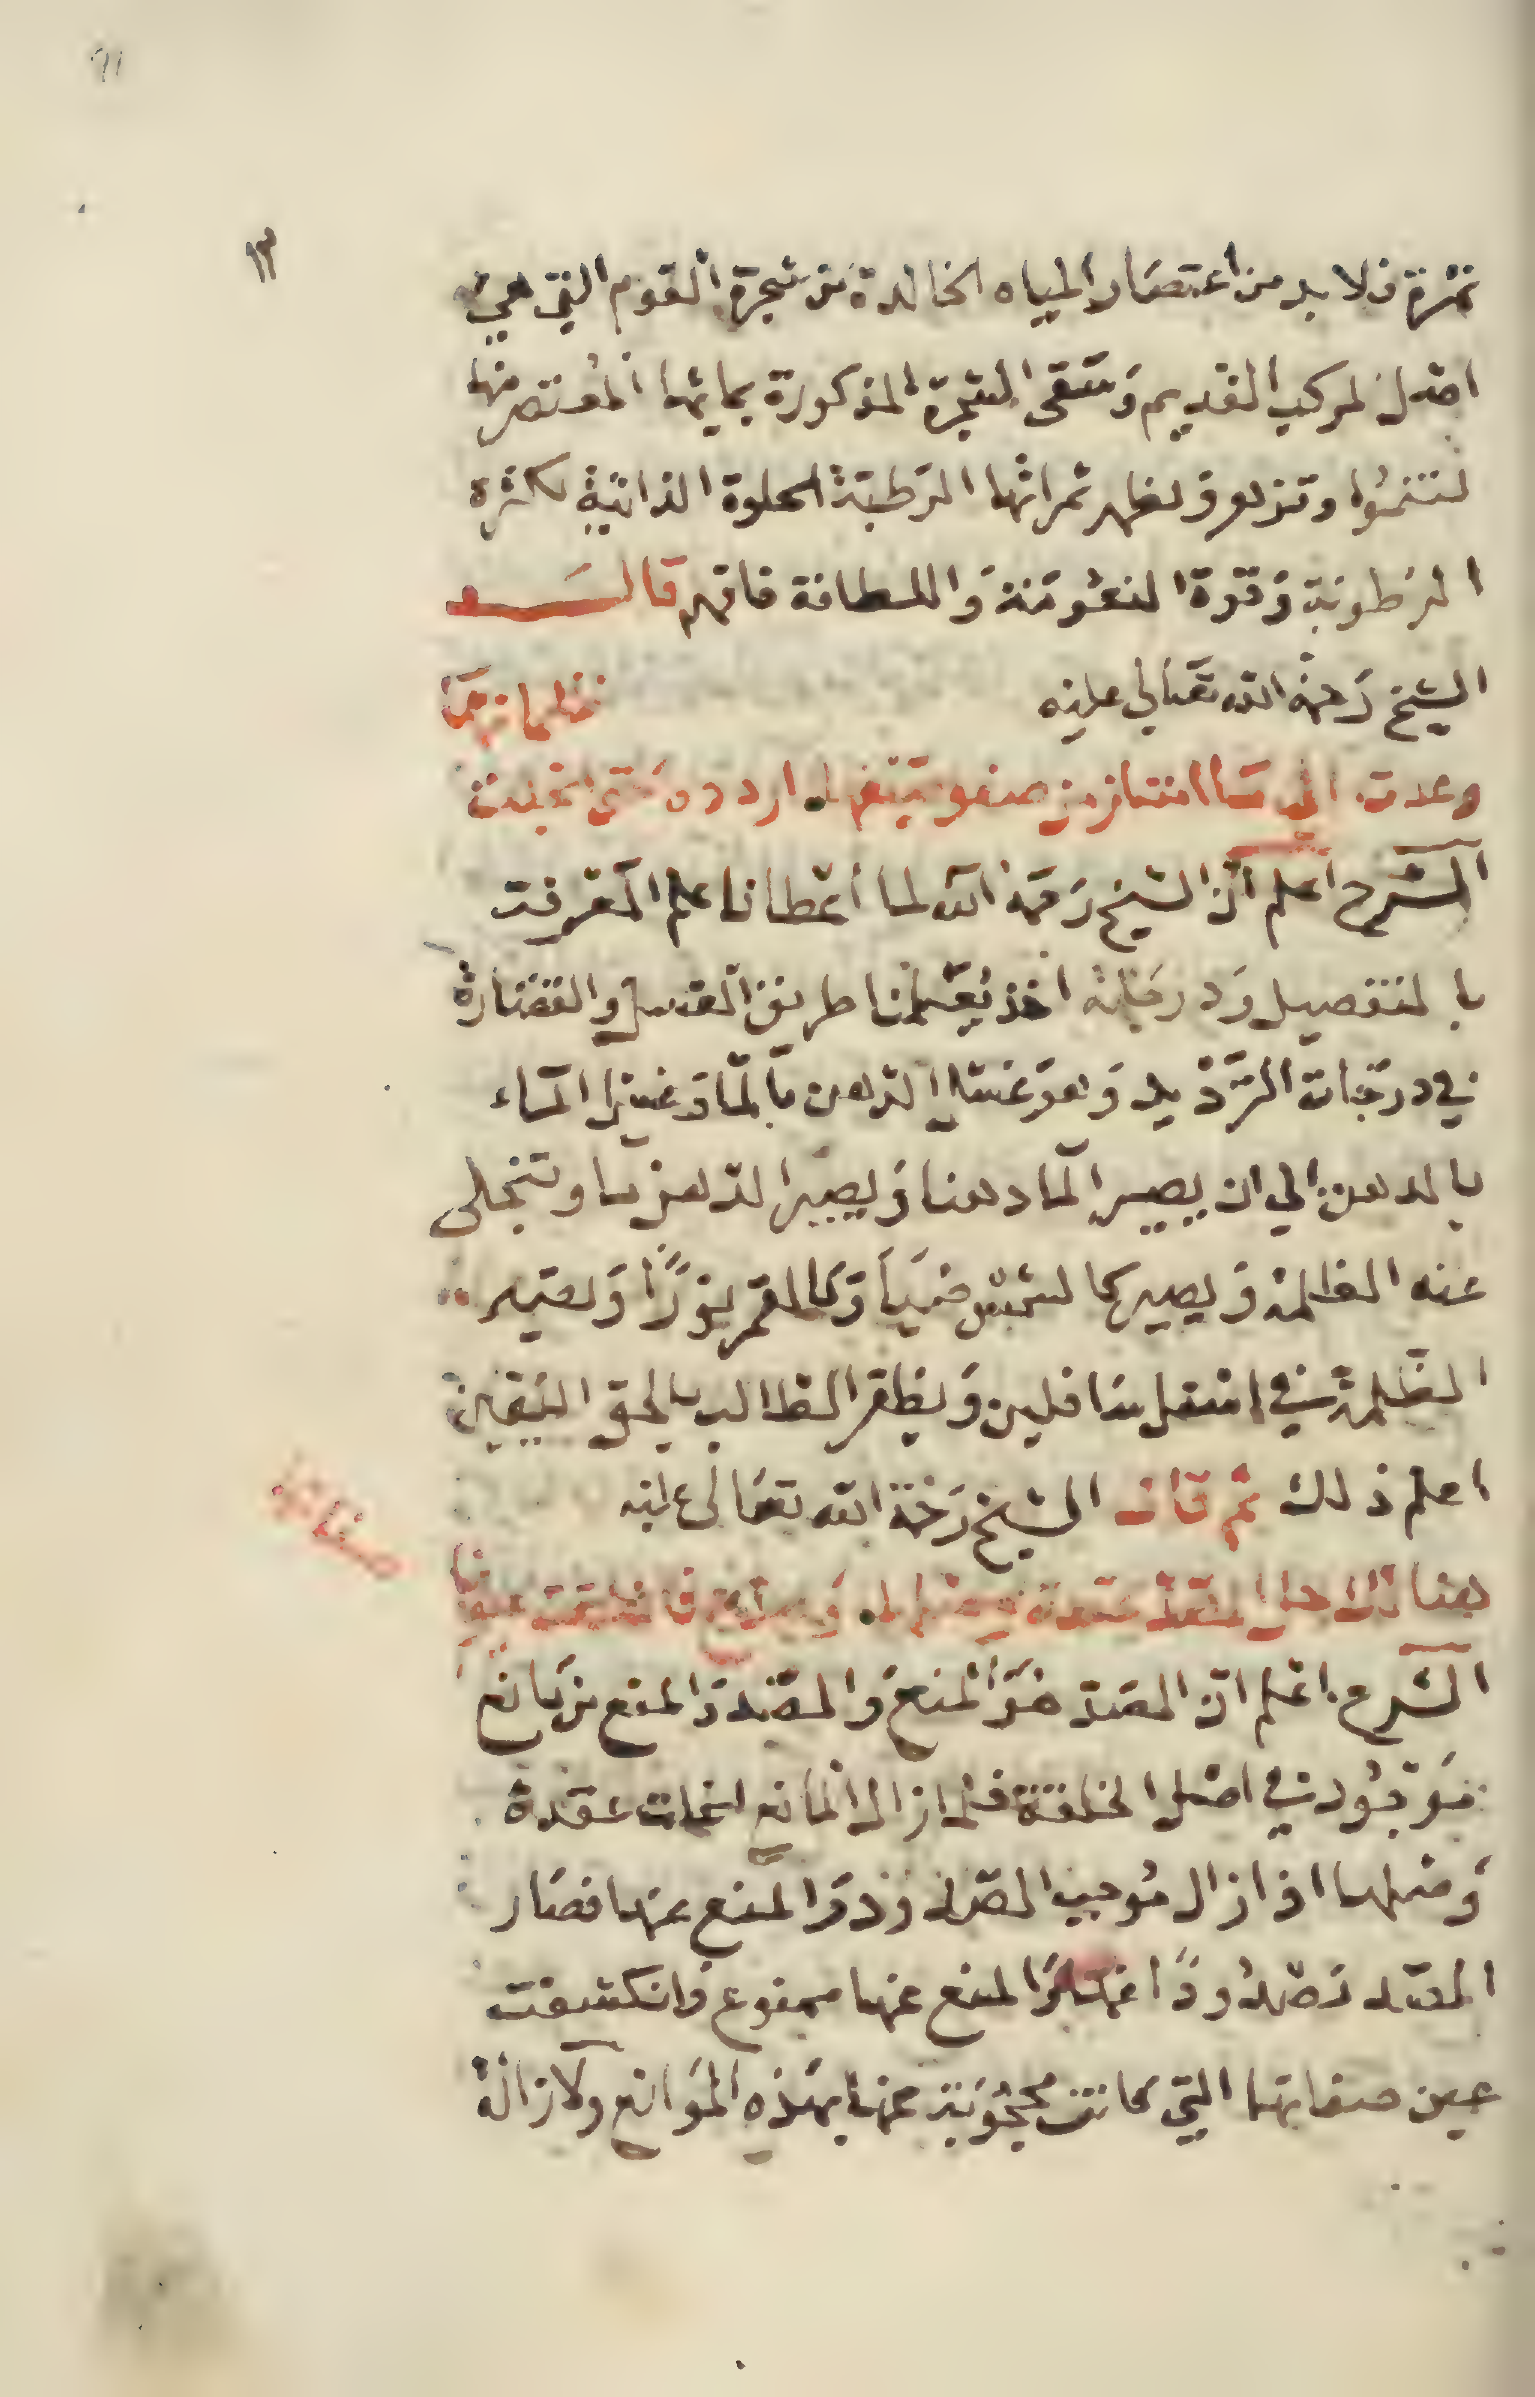 ٩١
١٣
ثمرة فلا بد من اعتصار المياه الخالدة من شجرة القوم التي هي
اصل لمركب القديم وتسقى الشجرة المذكورة بمائها المعتصر منها
لتنموا وتزهو وتظهر ثمراتها الرطبة الحلوة الذاتية لكثرة
الرطوبة وقوة النعومة واللطافة فافهم قال
الشيخ رحمة الله تعالى عليه
وعدت الى من صفو اردده حتى
الشرح اعلم ان الشيخ رحمه الله لما اعطانا علم المعرفت
بالتفصيل ودرجاته اخذ يعلمنا طريق الغسل والقصارة
في درجات الترذيل وهو غسل الدهن بالما وغسل الماء
بالدهن الي ان يصير الما دهنا ويصير الدهن ما وتنجلى
عنه الظلمة ويصير كالشمس ضيا وكالقمر نورا وتصير
الظلمة في اسفل سافلين ويظفر الطالب بالحق اليقين
اعلم ذلك ثم قال الشيخ رحمة الله تعالى عليه
هنا لك حل
الشرح اعلم ان الصد هو المنع والصد والمنع من مانع
موجود في اصل الخلقة فلما زال المانع انحلت عقدة
وصلها اذا زال موجب الصد وزد والمنع عنها فصار
الصد مصدودا عنها والمنع عنها ممنوع وانكشفت
عين صفاتها التي كانت محجوبة عنها بهذه الموانع ولازالة